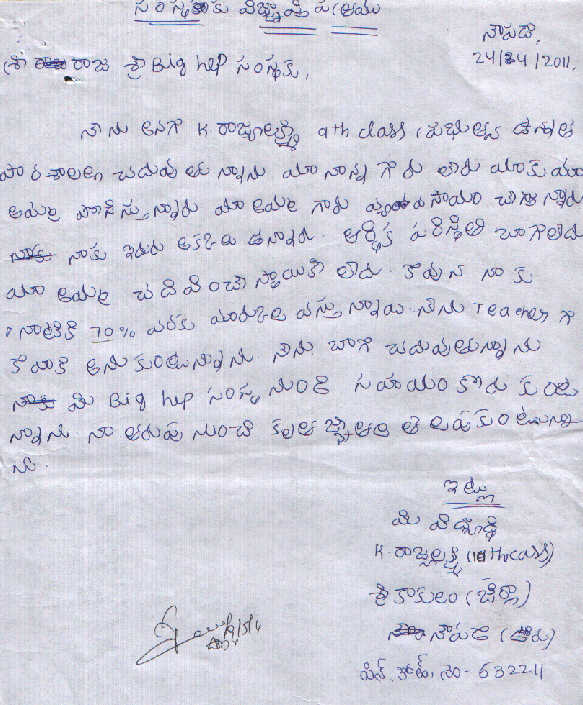 సంస్థకు విజ్ఞాప్తి పత్రము
సాపడి,
24/34/2011.
శ్రీ రాజ శ్రీ Big help సంస్థకు,
నాను అనగా K రాజ్యలక్ష్మి 9th class
పాఠశాలలో చదువుతున్నాను మా నాన్న గారు లేరు మాకు మా
అమ్మ పోషిస్తున్నారు మా అమ్మ గారు వ్యవసాయం చేస్తున్నారు
నాకు ఇద్దరు అక్కలు ఉన్నారు. ఆర్థిక పరిస్థితి బాగలేదు
మా అమ్మ చదివించే స్థాయికి లేదు. కావున నాకు
70% వరకు మార్కులు వస్తున్నాయి. నేను Teacher గా
కావాలి అనుకుంటున్నాను నేను బాగా చదువుతున్నాను
మీ Big help సంస్థ నుండి సహాయం కోరుకుంటు
న్నాను నా తరుపు నుంచి కృతజ్ఞతలు తెలుపకుంటున్నా
ను.
ఇట్లు
మీ విద్యార్థి
K. రాజ్యలక్ష్మి (10th class)
శ్రీకాకుళం (జిల్లా)
సాపడి (ఊరు)
పిన్. కోడ్. నెం - 532211